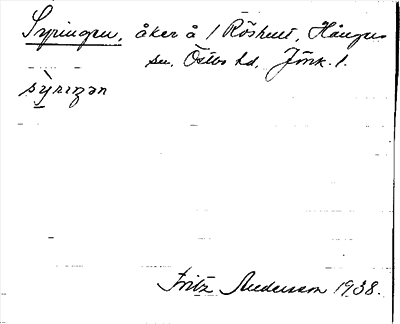 Syringen, åker å 1 Röshult, Hånger
sn. Östbo hd, Jönk. l.
sỳrɪŋən
Fritz Andersson 1938.